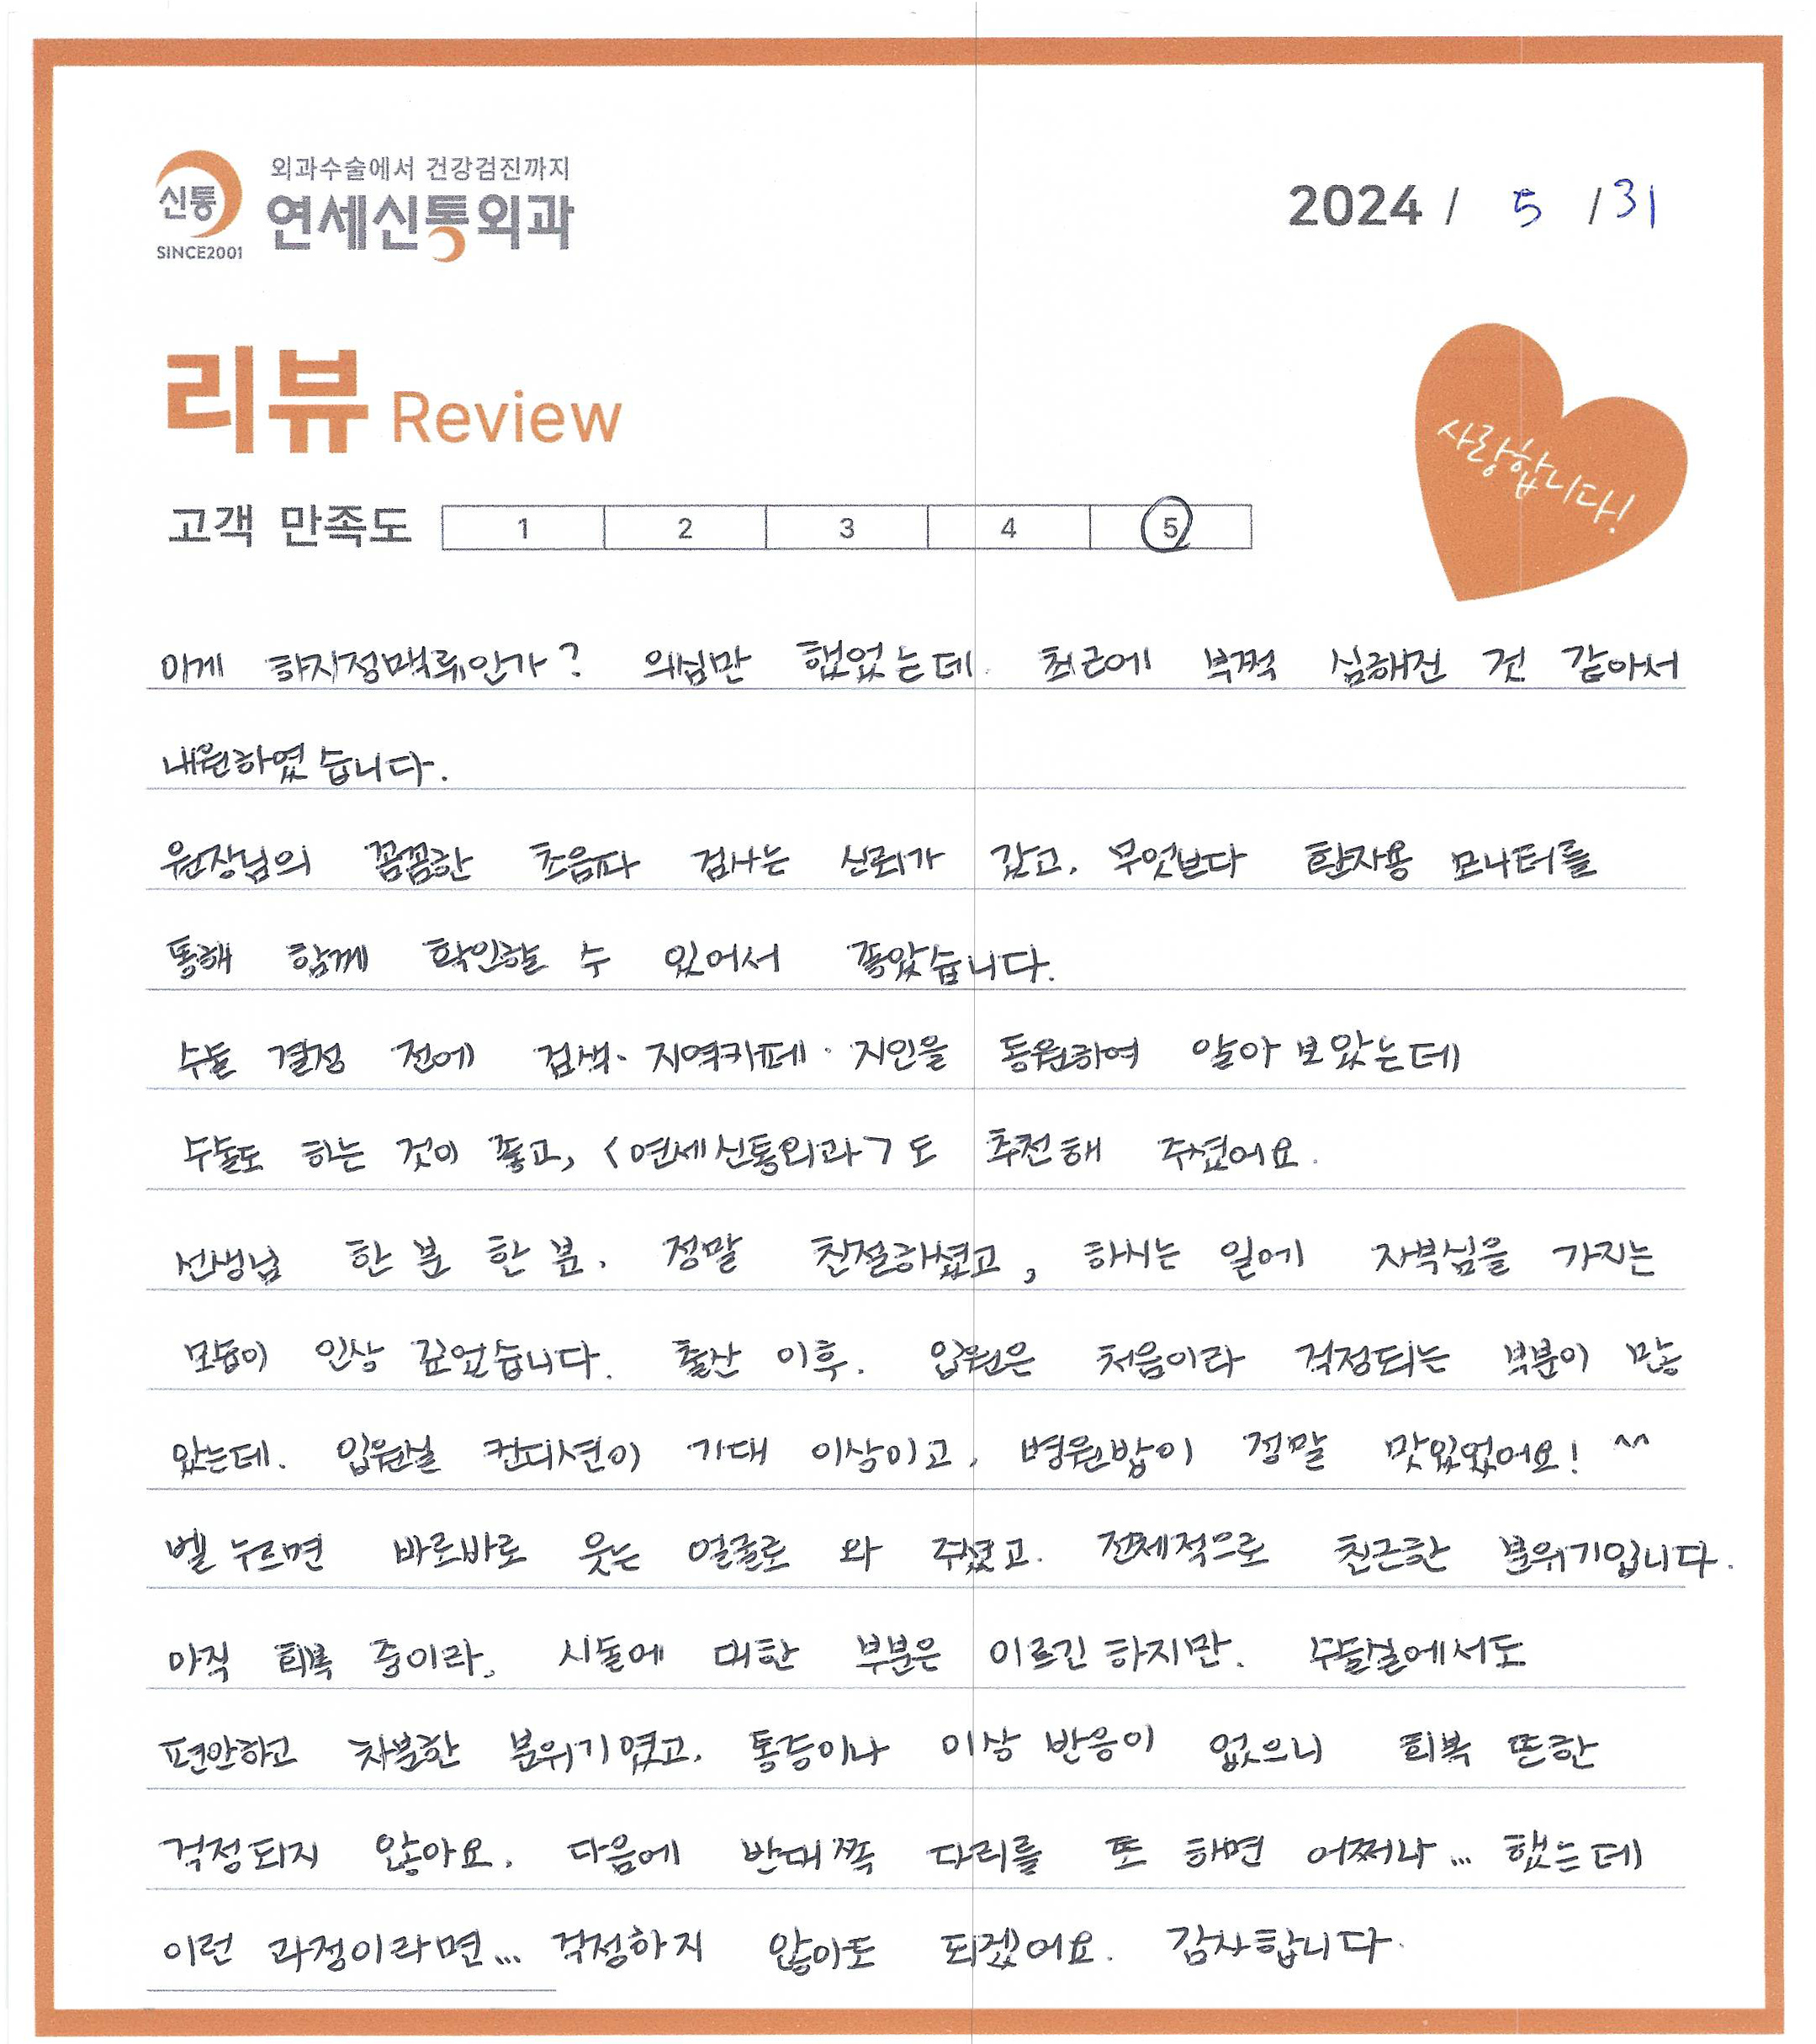 신통
SINCE2001
외과수술에서 건강검진까지
연세신통외과
2024 / 5 / 31
리뷰 Review
사랑합니다!
고객 만족도 1 2 3 4 5
이게 하지정맥류인가? 의심만 했었는데. 최근에 부쩍 심해진 것 같아서
내원하였습니다.
원장님의 꼼꼼한 초음파 검사는 신뢰가 갔고, 무엇보다 환자용 모니터를
통해 함께 확인할 수 있어서 좋았습니다.
수술 결정 전에 검색·지역카페·지인을 동원하여 알아보았는데
수술도 하는 것이 좋고, <연세신통외과>도 추천해 주셨어요.
선생님 한 분 한 분. 정말 친절하셨고, 하시는 일에 자부심을 가지는
모습이 인상 깊었습니다. 출산 이후. 입원은 처음이라 걱정되는 부분이 많
았는데. 입원실 컨디션이 기대 이상이고, 병원밥이 정말 맛있었어요! ^^
벨 누르면 바로바로 웃는 얼굴로 와 주셨고. 전체적으로 친근한 분위기입니다.
아직 회복 중이라, 시술에 대한 부분은 이르긴 하지만. 수술실에서도
편안하고 차분한 분위기였고, 통증이나 이상 반응이 없으니 회복 또한
걱정되지 않아요. 다음에 반대쪽 다리를 또 하면 어쩌나... 했는데
이런 과정이라면... 걱정하지 않아도 되겠어요. 감사합니다.